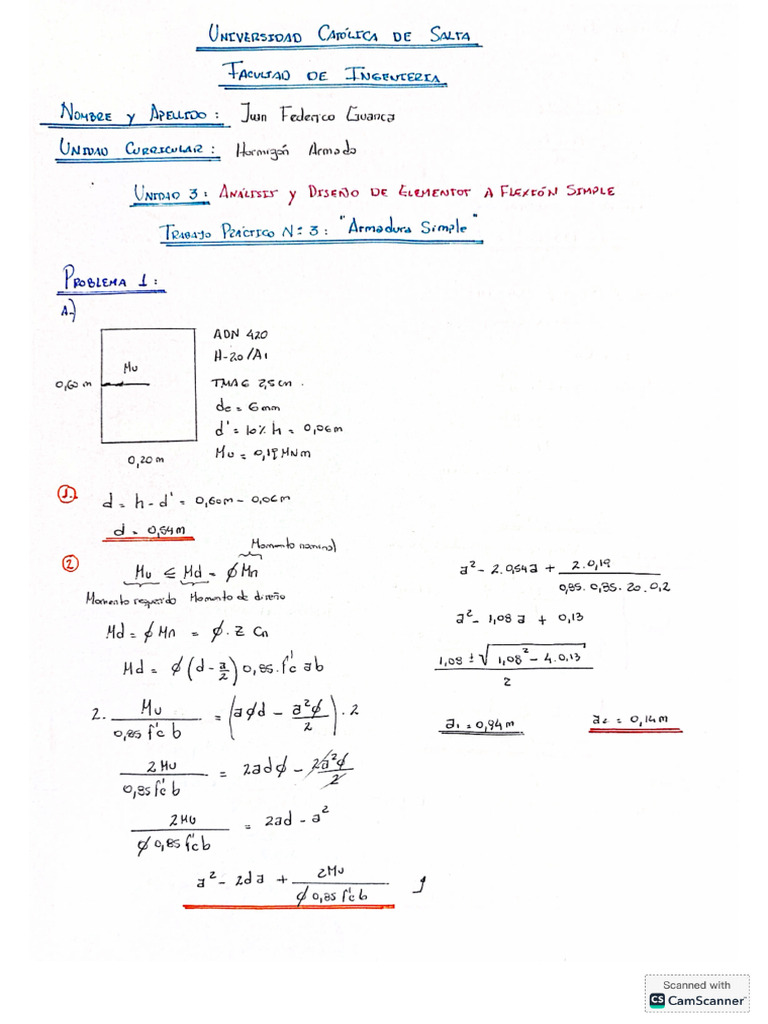 UNIVERSIDAD CATÓLICA DE SALTA
FACULTAD DE INGENIERIA
NOMBRE Y APELLIDO: Juan Federico Guanca
UNIDAD CURRICULAR: Hormigón Armado
UNIDAD 3: ANÁLISIS Y DISEÑO DE ELEMENTOT A FLEXIÓN SIMPLE
TRABAJO PRÁCTICO N° 3: "Armadura Simple"
PROBLEMA 1:
A-)
ADN 420
H-20/A1
Mu
0,60 m
TMAG 2,5cm.
de = 6mm
d' = 10% h = 0,06m
Mu = 0,19 MNm
0,20 m
1. d = h - d' = 0,60m - 0,06m
d = 0,54m
Momento nominal
2 Mu ≤ Md = ϕMn
Momento requerido Momento de diseño
Md = ϕMn = ϕ. Z Cn
Md = ϕ (d - a/2) 0,85. f'c ab
2. Mu / 0,85 f'c b = (aϕd - a²ϕ/2). 2
2Mu / 0,85 f'c b = 2adϕ - 2a²ϕ/2
2Mu / ϕ 0,85 f'c b = 2ad - a²
a² - 2da + 2Mu / ϕ 0,85 f'c b
a² - 2. 0,54a + 2. 0,19 / 0,85. 0,85. 20. 0,2
a² - 1,08 a + 0,13
1,08 ± √1,08² - 4. 0,13 / 2
a₁ = 0,94m
a₂ = 0,14m
Scanned with
CS CamScanner